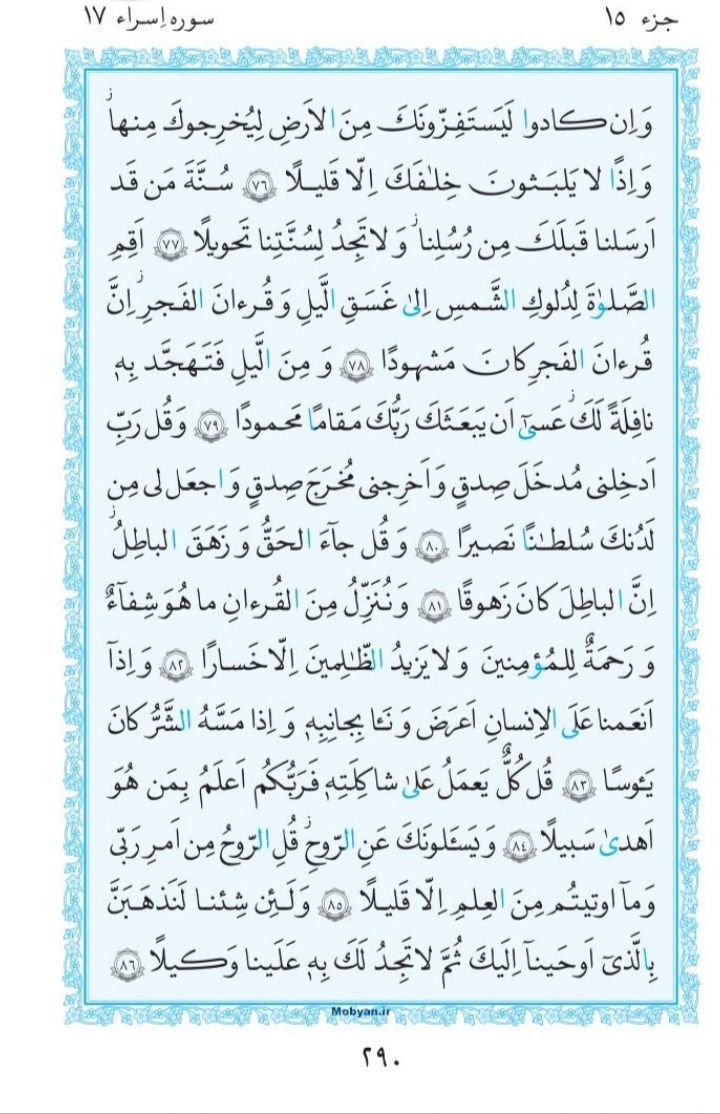 جزء ۱۵
سوره اِسراء ۱۷
وَ اِن كادوا لَيَستَفِزّونَكَ مِنَ الاَرضِ لِيُخرِجوكَ مِنها ۖ
وَ اِذًا لا يَلبَثونَ خِلٰفَكَ اِلّا قَليلًا ﴿٧٦﴾ سُنَّةَ مَن قَد
اَرسَلنا قَبلَكَ مِن رُسُلِنا ۖ وَ لا تَجِدُ لِسُنَّتِنا تَحويلًا ﴿٧٧﴾ اَقِمِ
الصَّلوٰةَ لِدُلوكِ الشَّمسِ اِلىٰ غَسَقِ الَّيلِ وَ قُرءانَ الفَجرِ ۖ اِنَّ
قُرءانَ الفَجرِ كانَ مَشهودًا ﴿٧٨﴾ وَ مِنَ الَّيلِ فَتَهَجَّد بِهٖ
نافِلَةً لَكَ ۖ عَسىٰٓ اَن يَبعَثَكَ رَبُّكَ مَقامًا مَحمودًا ﴿٧٩﴾ وَ قُل رَبِّ
اَدخِلنى مُدخَلَ صِدقٍ وَ اَخرِجنى مُخرَجَ صِدقٍ وَ اجعَل لى مِن
لَدُنكَ سُلطٰنًا نَصيرًا ﴿٨٠﴾ وَ قُل جآءَ الحَقُّ وَ زَهَقَ الباطِلُ ۖ
اِنَّ الباطِلَ كانَ زَهوقًا ﴿٨١﴾ وَ نُنَزِّلُ مِنَ القُرءانِ ما هُوَ شِفآءٌ
وَ رَحمَةٌ لِلمُؤمِنينَ وَ لا يَزيدُ الظّٰلِمينَ اِلّا خَسارًا ﴿٨٢﴾ وَ اِذآ
اَنعَمنا عَلَى الاِنسانِ اَعرَضَ وَ نَـٔا بِجانِبِهٖ وَ اِذا مَسَّهُ الشَّرُّ كانَ
يَـٔوسًا ﴿٨٣﴾ قُل كُلٌّ يَعمَلُ عَلىٰ شاكِلَتِهٖ فَرَبُّكُم اَعلَمُ بِمَن هُوَ
اَهدىٰ سَبيلًا ﴿٨٤﴾ وَ يَسـَٔلونَكَ عَنِ الرّوحِ ۖ قُلِ الرّوحُ مِن اَمرِ رَبّى
وَ مآ اوتيتُم مِنَ العِلمِ اِلّا قَليلًا ﴿٨٥﴾ وَ لَئِن شِئنا لَنَذهَبَنَّ
بِالَّذىٓ اَوحَينآ اِلَيكَ ثُمَّ لا تَجِدُ لَكَ بِهٖ عَلَينا وَكيلًا ﴿٨٦﴾
Mobyan.ir
٢٩٠